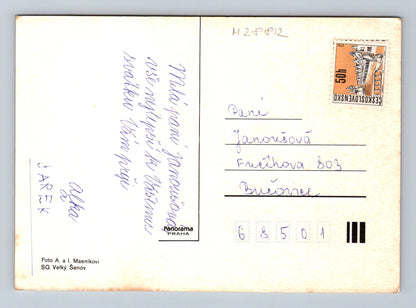 M 28812
Milá paní Janoušová
vše nejlepší k Vašemu
svátku Vám přeje
Alka
JAREK
Foto A. a I. Masníkovi
SG Velký Šenov
Panorama
PRAHA
50h
ČESKOSLOVENSKO
Paní
Janoušová
Fučíkova 803
Bučovice
68501